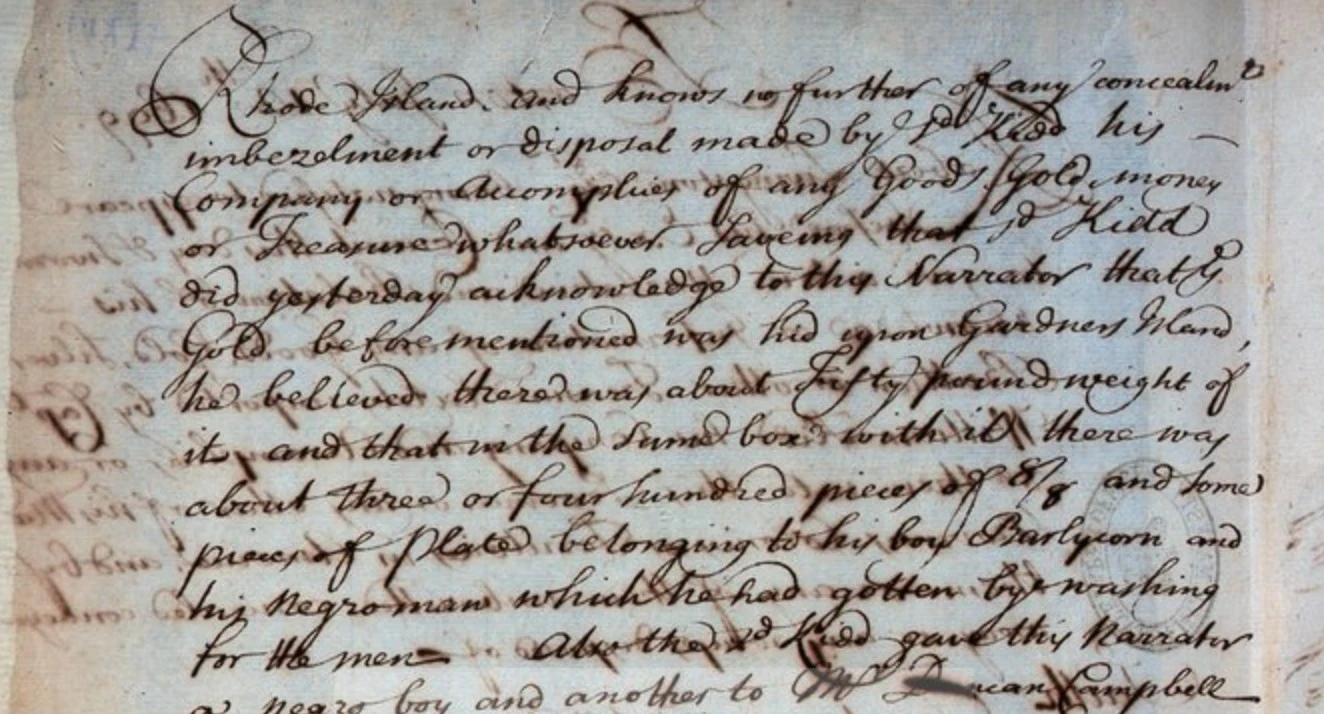 Rhode Island. and knows no further of any concealmt
imbezelment or disposal made by sd Kidd his —
Company or Acomplices of any Goods, Gold, money
or Treasure whatsoever. Saveing that sd Kidd
did yesterday acknowledge to this Narrator that ye
Gold before mentioned was hid upon Gardners Island,
he believed there was about Fifty pound weight of
it and that in the same box with it there was
about three or four hundred pieces of 8/8 and some
pieces of Plate belonging to his boy Barlycorn and
his negro man which he had gotten by washing
for the men — Also the sd Kidd gave this Narrator
a negro boy and another to Mr Duncan Campbell